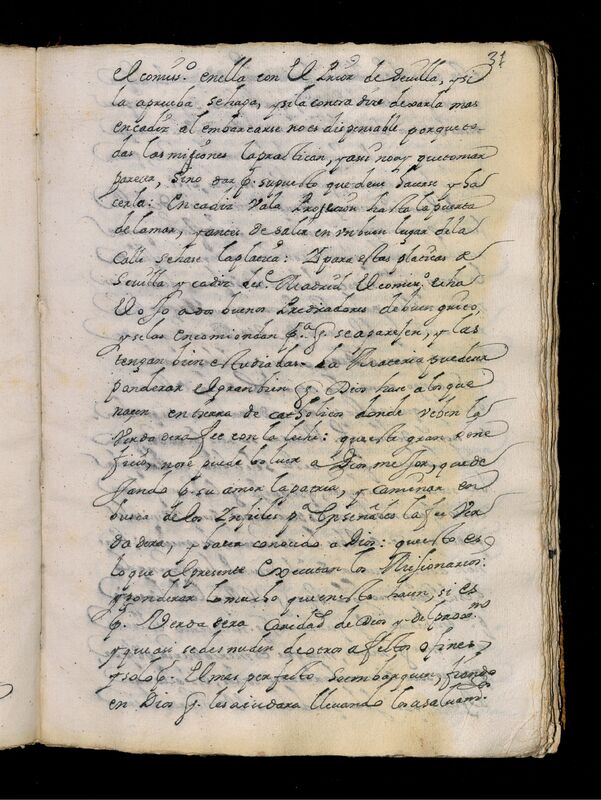 31
el comis.o en ella con El Prior de Sevilla, y si
la aprueba, se haga, y si la contradize dexarla mas
en cadiz al embarcarse no es dispensable porque to-
das las misiones la practican, y assi no ay que tomar
parecer, sino dar p. supuesto que deve hacerse y ha
cerla: En cadiz va la Procesion hasta la puerta
de la mar, y antes de salir en un buen lugar de la
calle se hace la platica: Y para estas platicas de
Sevilla y cadiz des.e Madrid El comis.o echa
El ojo a dos buenos Predicadores de buen
y se las encomiendan p.a q. se aparejen, y las
tengan bien estudiadas. La Materia puede ser
ponderar el gran bien q. Dios hace a los que
nacen en tierra de catholicos donde beben la
Verdadera fee con la leche: que este gran bene
ficio, no se puede bolver a Dios mejor, que de
jando p. su amor la patria, y caminar en
busca de los Infieles p.a Enseñarles la fee Ver
dadera, y hacer conocido a Dios: que esto es
lo que al presente Executan los Missionarios:
y ponderar lo mucho que en esto hacen, si es
p. Verdadera Caridad de Dios y del proximo
y que assi se desnuden de otros afectos o fines
y solo p. El mas perfecto se embarquen, fiando
en Dios q. les aiudara llevando los a salvam.to